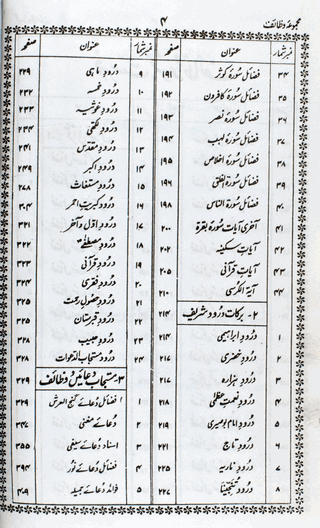 مجموعہ وظائف
۴
نمبرشمار عنوان صفحہ
۳۴ فضائل سورۃ کوثر ۱۹۱
۳۵ فضائل سورۃ کافرون ۱۹۲
۳۶ فضائل سورۃ نصر ۱۹۳
۳۷ فضائل سورۃ لہب ۱۹۴
۳۸ فضائل سورۃ اخلاص ۱۹۵
۳۹ فضائل سورۃ الفلق ۱۹۶
۴۰ فضائل سورۃ الناس ۱۹۸
۴۱ آخری آیات سورۃ بقرۃ ۲۰۰
۴۲ آیات سکینہ ۲۰۲
۴۳ آیات قرآنی ۲۰۵
۴۴ آیۃ الکرسی ۲۱۰
۲- برکات درود شریف ۲۱۴
۱ درود ابراہیمی ۲۱۴
۲ درود خضری ۲۱۷
۳ درود ہزارہ ۲۱۷
۴ درود نعمت عظمٰی ۲۱۸
۵ درود امام بوصیری ۲۱۹
۶ درود تاج ۲۲۱
۷ درود ناریہ ۲۲۵
۸ درود تنجینا ۲۲۷
نمبرشمار عنوان صفحہ
۹ درود ماہی ۲۲۹
۱۰ درود خمسہ ۲۳۲
۱۱ درود غوثیہ ۲۳۳
۱۲ درود لکھی ۲۳۴
۱۳ درود مقدس ۲۴۱
۱۴ درود اکبر ۲۴۹
۱۵ درود مستغاث ۲۷۸
۱۶ درود کبریت احمر ۳۰۴
۱۷ درود اول و آخر ۳۲۱
۱۸ درود مصطفےٰ ۳۲۲
۱۹ درود قرآنی ۳۲۳
۲۰ درود فقری ۳۲۴
۲۱ درود حصول رحمت ۳۲۵
۲۲ درود قبرستان ۳۲۵
۲۳ درود حبیب ۳۲۸
۲۴ درود مستجاب الدعوات ۳۲۸
۳- مستجاب دعائیں و وظائف ۳۲۹
۱ فضائل دعائے گنج العرش ۳۲۹
۲ دعائے مغنی ۳۴۷
۳ اسناد دعائے سیفی ۳۵۵
۴ فضائل دعائے نور ۳۹۴
۵ فوائد دعائے جمیلہ ۴۰۹